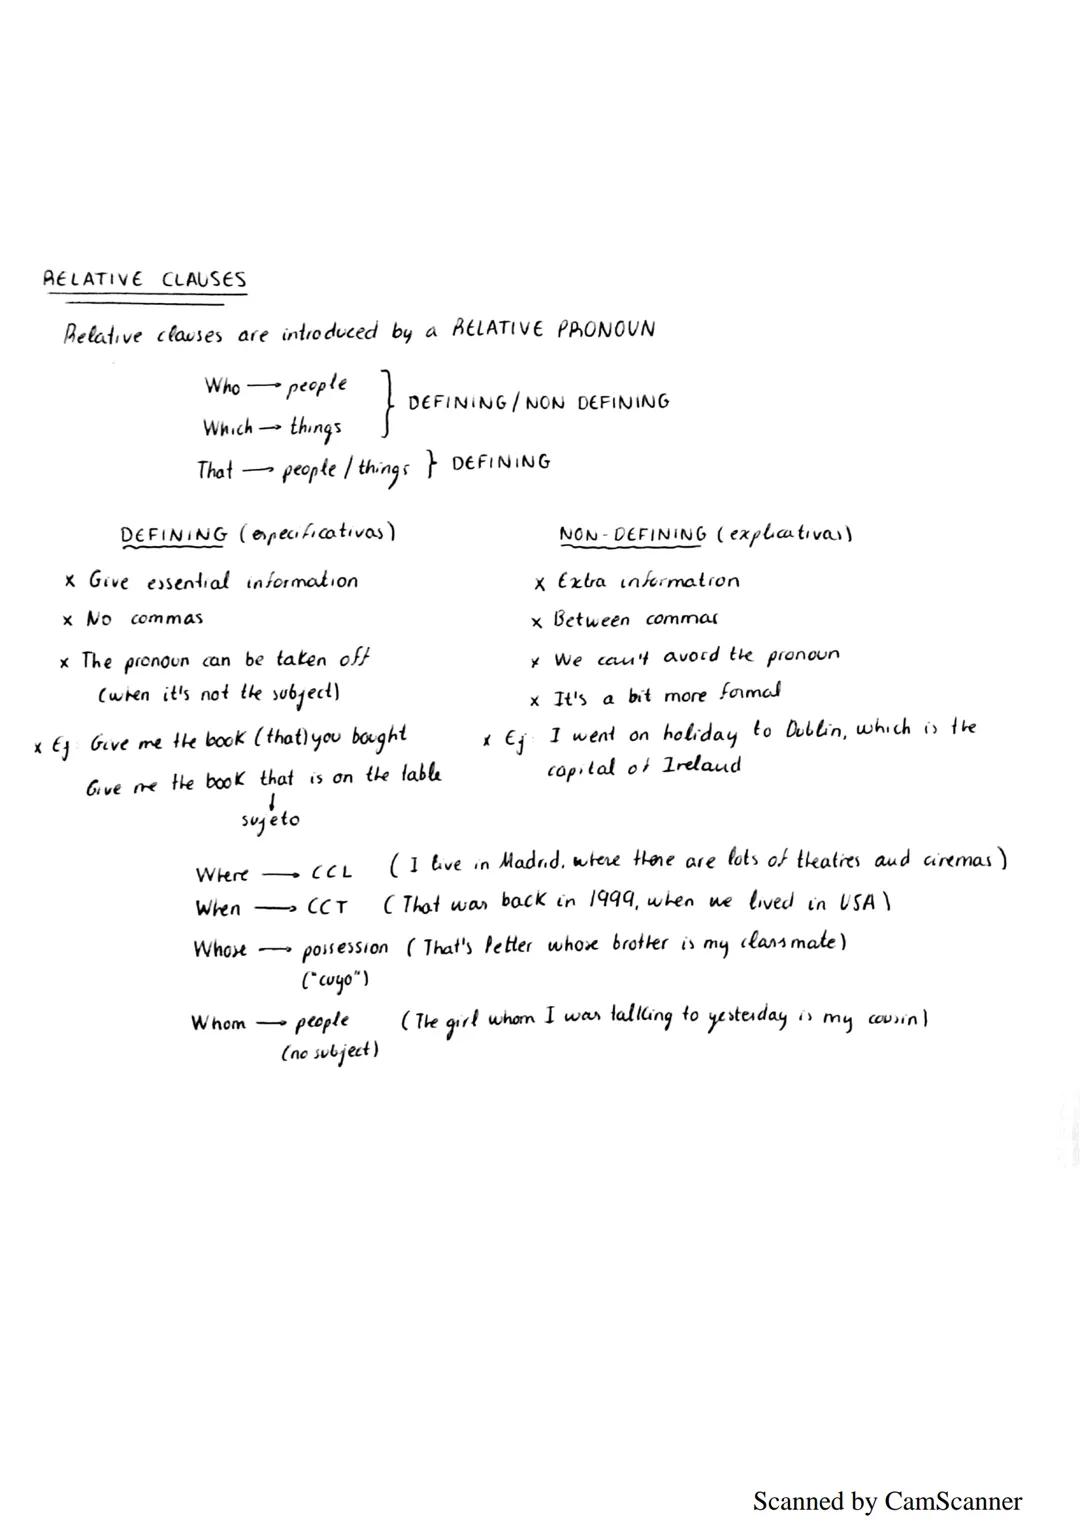 RELATIVE CLAUSES
Relative clauses are introduced by a RELATIVE PRONOUN
Who → people
Which → things
} DEFINING / NON DEFINING
That → people / things } DEFINING
DEFINING (especificativas)
x Give essential information
x No commas
x The pronoun can be taken off
(when it's not the subject)
x Ej: Give me the book (that) you bought
Give me the book that is on the table
↓
sujeto
NON-DEFINING (explicativas)
x Extra information
x Between commas
x We can't avoid the pronoun
x It's a bit more formal
x Ej: I went on holiday to Dublin, which is the
capital of Ireland
Where → CCL (I live in Madrid, where there are lots of theatres and cinemas)
When → CCT (That was back in 1999, when we lived in USA)
Whose → possession (That's Petter whose brother is my classmate)
("cuyo")
Whom → people (The girl whom I was tallking to yesterday is my cousin)
(no subject)
Scanned by CamScanner